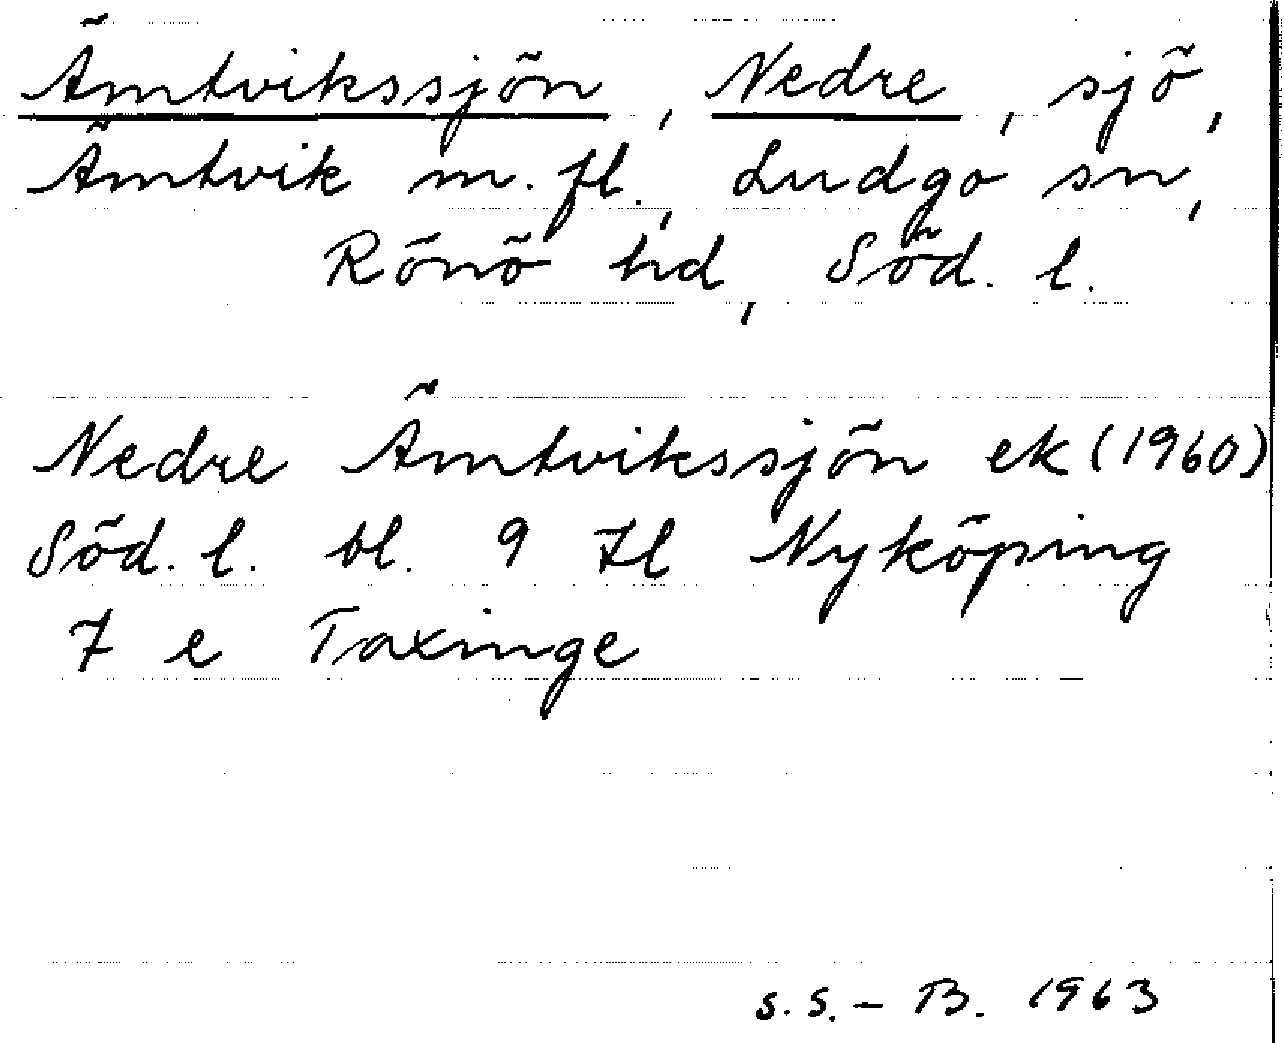 Ämtvikssjön, Nedre, sjö,
Ämtvik m.fl., Ludgo sn,
Rönö hd, Söd. l.
Nedre Ämtvikssjön ek (1960)
Söd. l. bl. 9 Il Nyköping
7 e Taxinge
S.S. – B. 1963